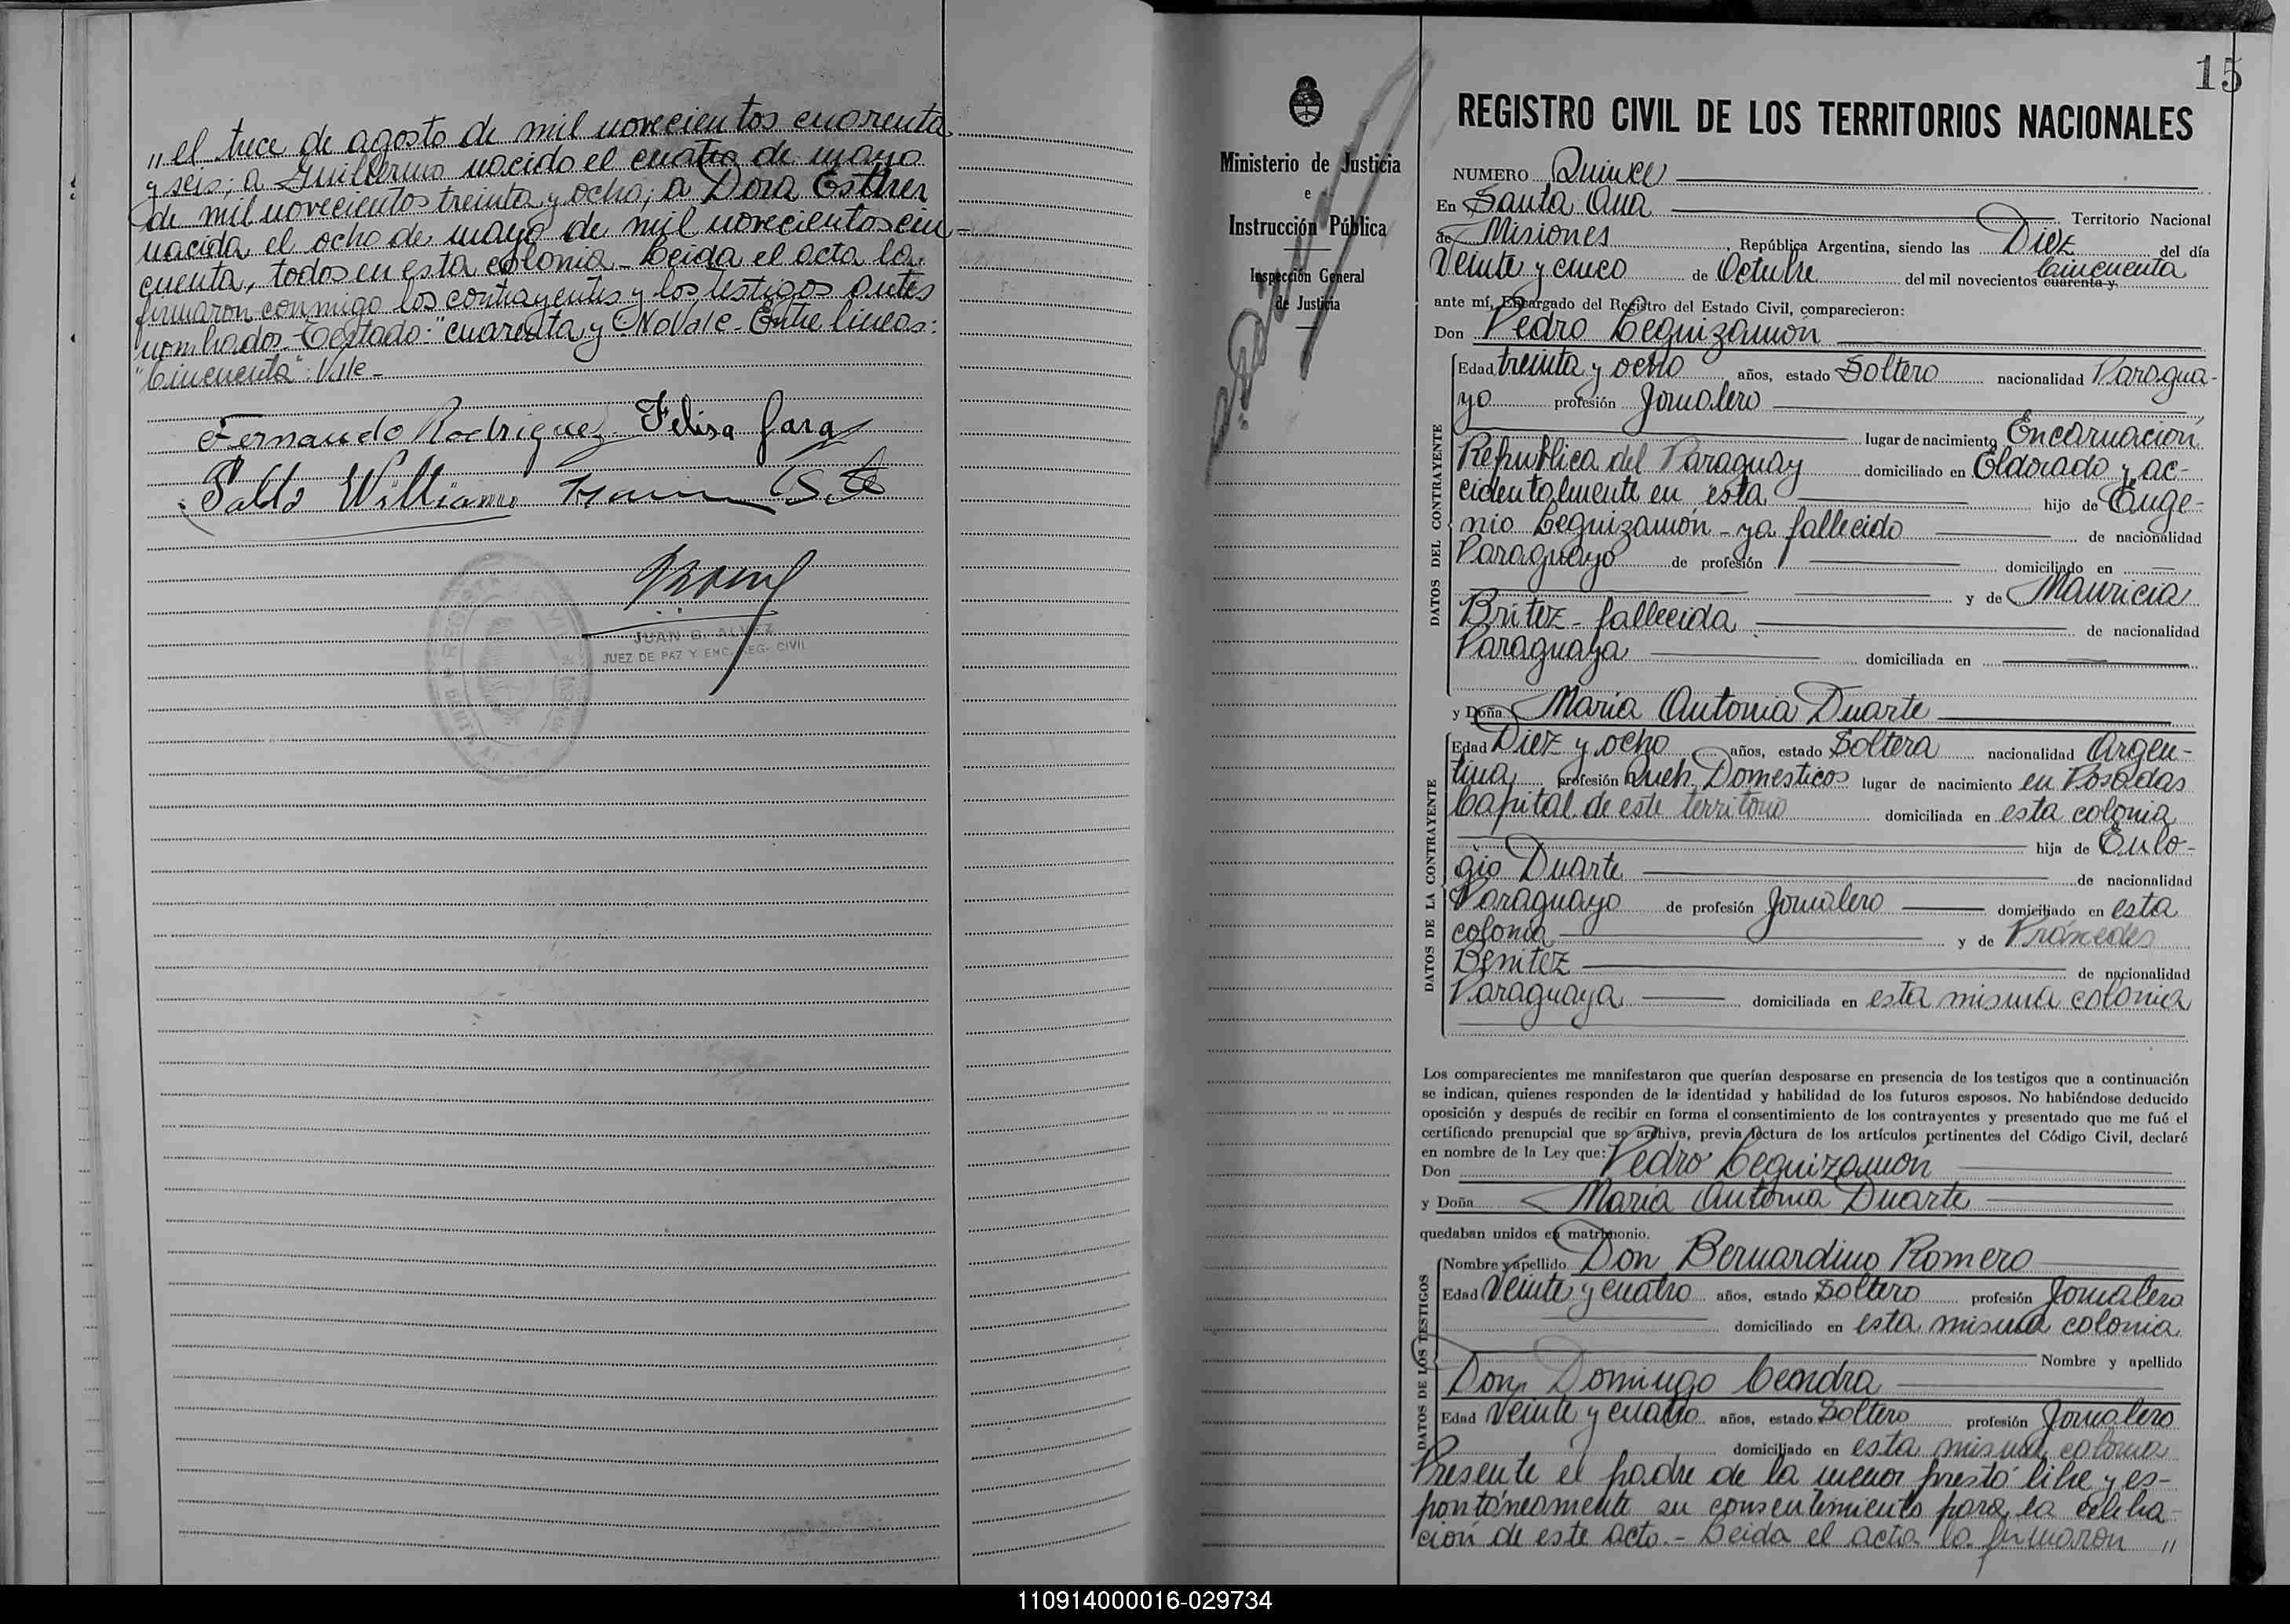 " el trece de agosto de mil novecientos cuarenta
y seis; a Guillermo nacido el cuatro de mayo
de mil novecientos treinta y ocho; a Dora Esther
nacida el ocho de mayo de mil novecientos cin-
cuenta, todos en esta colonia - Leida el acta la
firmaron conmigo los contrayentes y los testigos antes
nombrados - Testado: "cuarenta y" No Vale - Entre lineas:
"Cincuenta": Vale -
Fernando Rodriguez Felisa Gara
Pablo Williams
JUAN G. ALVEZ
JUEZ DE PAZ Y ENC. REG. CIVIL
15
Ministerio de Justicia
e
Instrucción Pública
Inspección General
de Justicia
REGISTRO CIVIL DE LOS TERRITORIOS NACIONALES
NUMERO Quince
En Santa Ana Territorio Nacional
de Misiones, República Argentina, siendo las Diez del día
Veinte y cinco de Octubre del mil novecientos cuarenta y Cincuenta
ante mí, Encargado del Registro del Estado Civil, comparecieron:
Don Pedro Leguizamon
DATOS DEL CONTRAYENTE
Edad treinta y ocho años, estado Soltero nacionalidad Paragua-
yo profesión Jornalero
lugar de nacimiento Encarnación,
Republica del Paraguay domiciliado en Eldorado y ac-
cidentalmente en esta hijo de Euge-
nio Leguizamón - ya fallecido de nacionalidad
Paraguayo de profesión domiciliado en
y de Mauricia
Britez - fallecida de nacionalidad
Paraguaya domiciliada en
y Doña María Antonia Duarte
DATOS DE LA CONTRAYENTE
Edad Diez y ocho años, estado Soltera nacionalidad Argen-
tina profesión Queh. Domesticos lugar de nacimiento en Posadas
Capital de este territorio domiciliada en esta colonia
hija de Eulo-
gio Duarte de nacionalidad
Paraguayo de profesión Jornalero domiciliado en esta
colonia y de Práxedes
Benitez de nacionalidad
Paraguaya domiciliada en esta misma colonia
Los comparecientes me manifestaron que querían desposarse en presencia de los testigos que a continuación
se indican, quienes responden de la identidad y habilidad de los futuros esposos. No habiéndose deducido
oposición y después de recibir en forma el consentimiento de los contrayentes y presentado que me fué el
certificado prenupcial que se archiva, previa lectura de los artículos pertinentes del Código Civil, declaré
en nombre de la Ley que:
Don Pedro Leguizamón
y Doña María Antonia Duarte
quedaban unidos en matrimonio.
DATOS DE LOS TESTIGOS
Nombre y apellido Don Bernardino Romero
Edad Veinte y cuatro años, estado Soltero profesión Jornalero
domiciliado en esta misma colonia
Nombre y apellido
Don Domingo Cendra
Edad Veinte y cuatro años, estado Soltero profesión Jornalero
domiciliado en esta misma colonia
Presente el padre de la menor prestó libre y es-
pontáneamente su consentimiento para la celebra-
ción de este acto. - Leida el acta la firmaron "
110914000016-029734